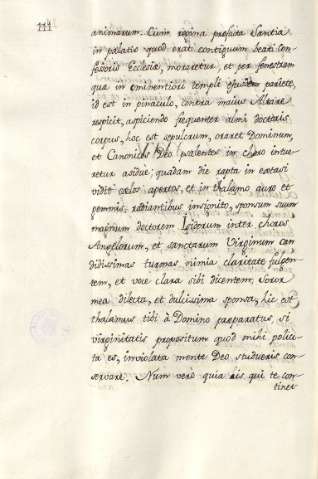 111
animarum. Cùm regina prefata Sanctia
in palatio quod erat contiguum beati con-
fessoris Ecclesiæ, moraretur, et per fenestram
quæ in eminentiori templi ejusdem pariete,
id est in pinaculo, contra maius Altare
respicit, aspiciendo frequenter almi doctoris
corpus, hoc est sepulcrum, oraret Dominum,
et Canonicos Deo psalentes in choro intue-
retur assidue; quadam die rapta in extasi
vidit cælos apertos, et in thalamo auro et
gemmis radiantibus insignito, sponsum suum
magnum doctorem Isidorum inter choros
Angelorum, et sanctarum Virginum can-
didissimas turmas nimia claritate fulgen-
tem, et voce clara sibi dicentem, Soror
mea dilecta, et dulcissima sponsa, hic est
thalamus tibi à Domino præparatus, si
virginitatis propositum quod mihi pollici-
ta es, inviolata mente Deo studueris con-
servare. Nam verò quia his, qui te con-
tinet